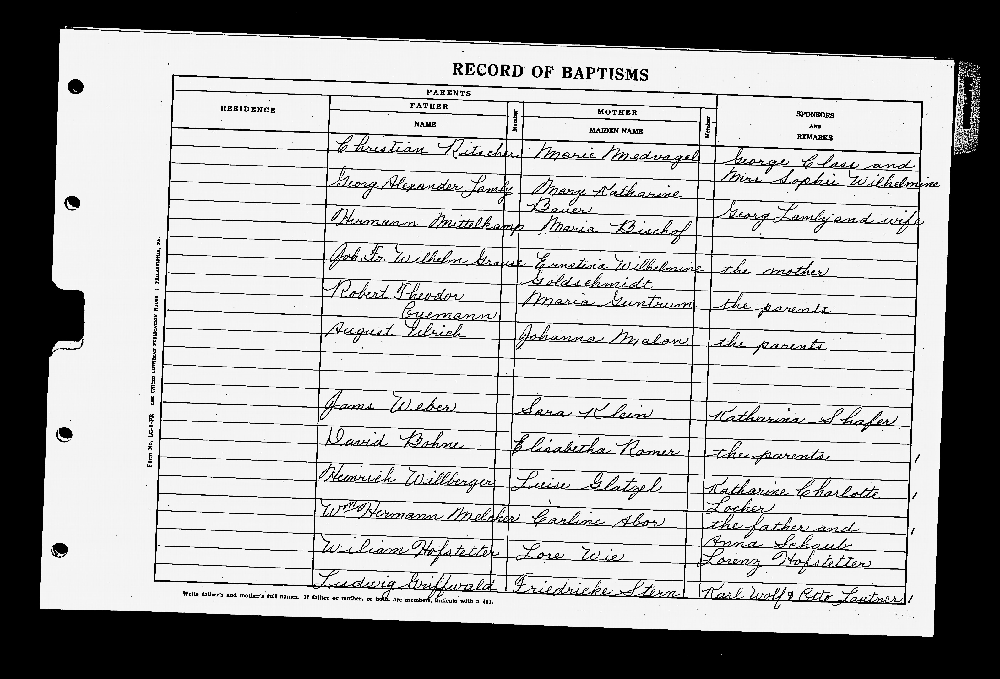 RECORD OF BAPTISMS
PARENTS
RESIDENCE
FATHER
NAME
Member
MOTHER
MAIDEN NAME
Member
SPONSORS
AND
REMARKS
Christian Ritscher Marie Medvogel George Clase and
Mrs Sophie Wilhelmine
Georg Alexander Lamly Mary Katharine
Bauer Georg Lamly and wife
Hermann Mittelkamp Maria Bischof
Joh. Fr. Wilhelm Grause Ernstina Wilhelmine the mother
Goldschmidt
Robert Theodor Maria Guntrum the parents
Eyemann
August Ulrich Johanna Malon the parents
Jams Weber Sara Klein Katharina Shafer
David Bohne Elisabetha Romer the parents
Heinrich Willberger Luise Glatzel Katharine Charlotte
Locher
Wm Hermann Melcher Carline Abor the father and
Anna Schaub
William Hofstetter Lore Wie Lorenz Hofstetter
Ludwig Griffwald Friedrieke Stern Karl Wolf & Otto Lautner
Write father's and mother's full names. If father or mother, or both, are members, indicate with a